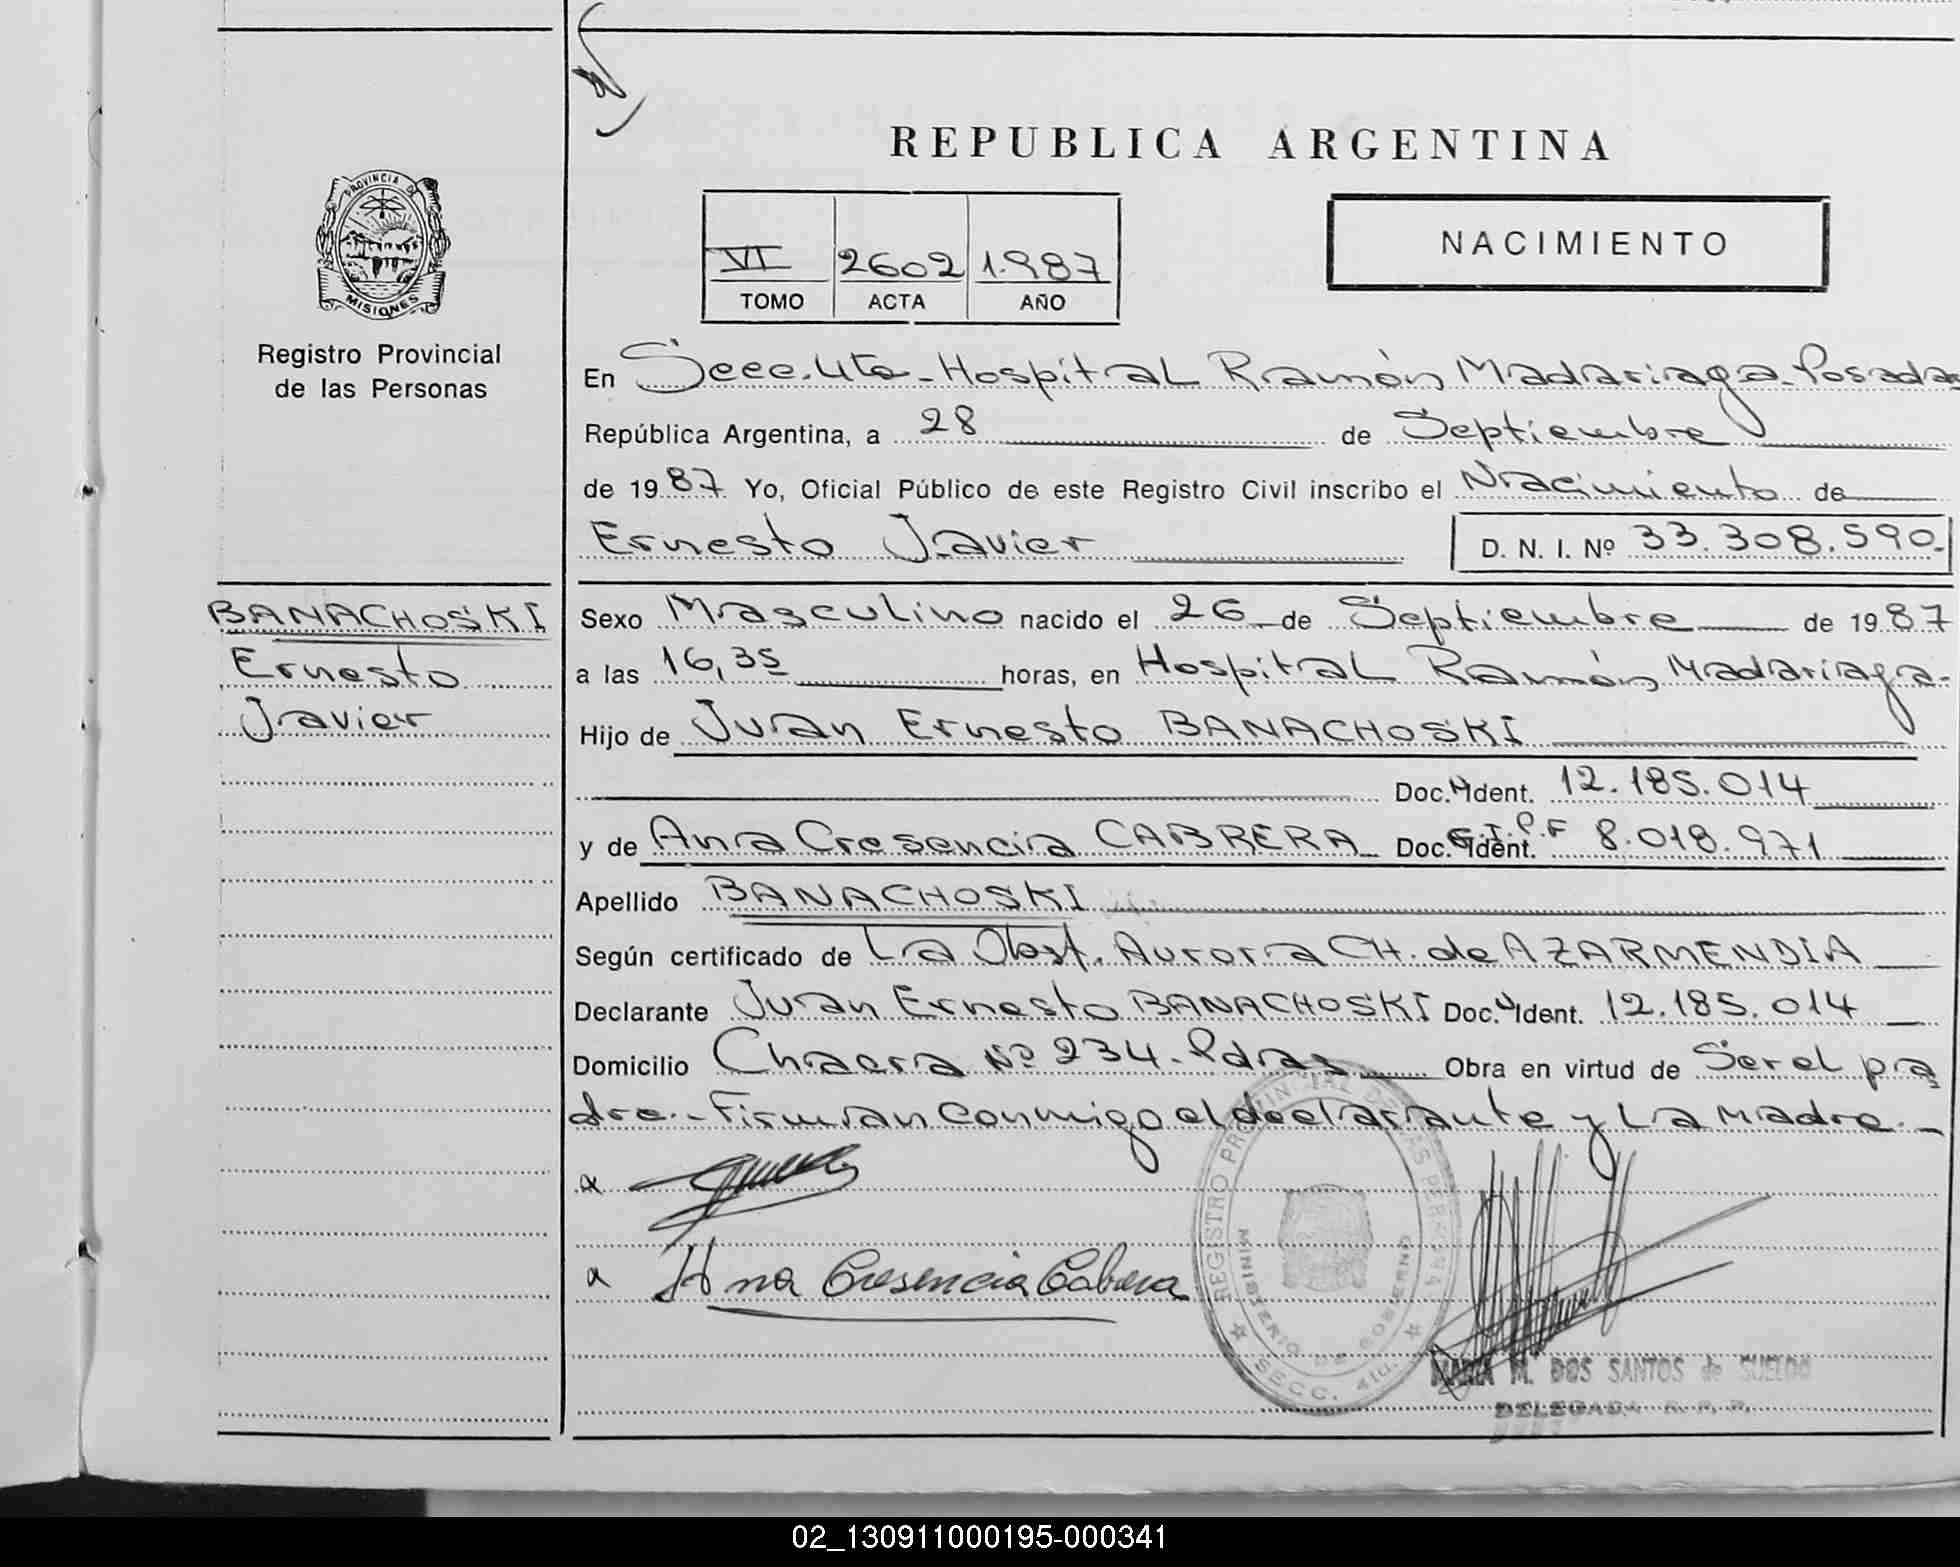 REPUBLICA ARGENTINA
PROVINCIA DE
MISIONES
Registro Provincial
de las Personas
VI 2602 1.987
TOMO ACTA AÑO
NACIMIENTO
En Secc. 4ta - Hospital Ramón Madariaga - Posadas
República Argentina, a 28 de Septiembre
de 1987 Yo, Oficial Público de este Registro Civil inscribo el Nacimiento de
Ernesto Javier D. N. I. Nº 33.308.590.-
BANACHOSKI
Ernesto
Javier
Sexo Masculino nacido el 26 de Septiembre de 1987
a las 16,35 horas, en Hospital Ramón Madariaga.-
Hijo de Juan Ernesto BANACHOSKI
Doc. Ident. 12.185.014
y de Ana Cresencia CABRERA Doc. Ident. C.I.P.F 8.018.971
Apellido BANACHOSKI
Según certificado de La Obst. Aurora CH. de AZARMENDIA
Declarante Juan Ernesto BANACHOSKI Doc. Ident. 12.185.014
Domicilio Chacra Nº 234 - Pdas Obra en virtud de Ser el pa
dre.- Firman conmigo el declarante y La Madre.-
x
x Ana Cresencia Cabrera
REGISTRO PROVINCIAL DE LAS PERSONAS
MINISTERIO DE GOBIERNO
SECC. 4ta.
MARIA M. DOS SANTOS de SUELDO
DELEGADA R. P. P.
02_130911000195-000341